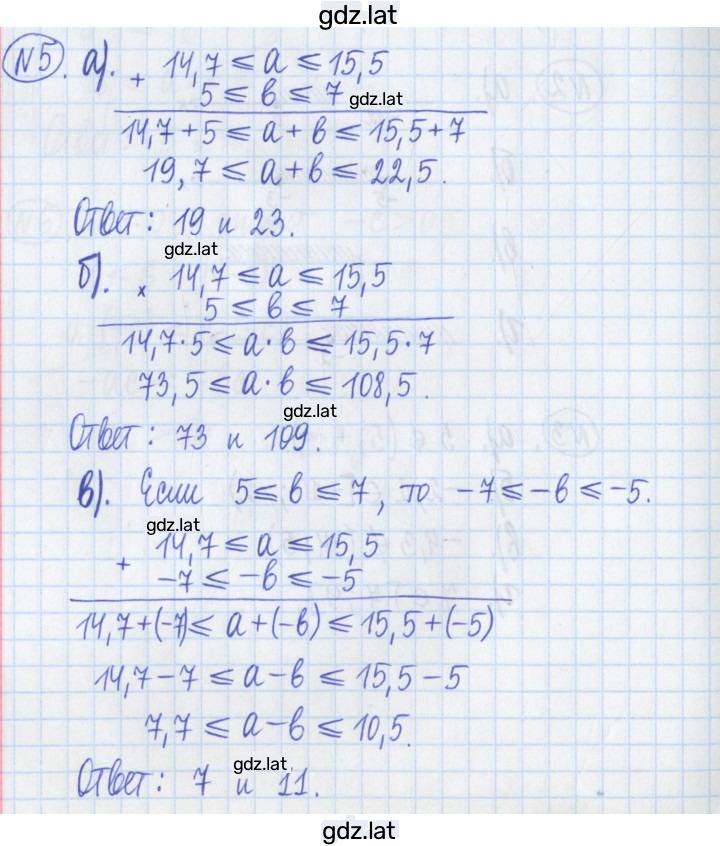 gdz.lat
№5. а). + 14,7 ≤ a ≤ 15,5
5 ≤ b ≤ 7 gdz.lat
14,7 + 5 ≤ a + b ≤ 15,5 + 7
19,7 ≤ a + b ≤ 22,5.
Ответ: 19 и 23.
gdz.lat
б). × 14,7 ≤ a ≤ 15,5
5 ≤ b ≤ 7
14,7 · 5 ≤ a · b ≤ 15,5 · 7
73,5 ≤ a · b ≤ 108,5.
gdz.lat
Ответ: 73 и 109.
в). Если 5 ≤ b ≤ 7, то -7 ≤ -b ≤ -5.
gdz.lat
+ 14,7 ≤ a ≤ 15,5
-7 ≤ -b ≤ -5
14,7 + (-7) ≤ a + (-b) ≤ 15,5 + (-5)
14,7 - 7 ≤ a - b ≤ 15,5 - 5
7,7 ≤ a - b ≤ 10,5.
gdz.lat
Ответ: 7 и 11.
gdz.lat